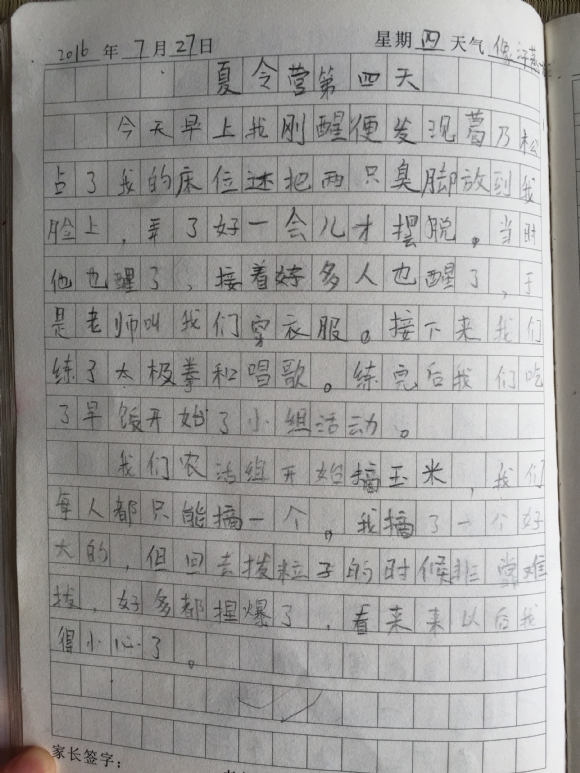 2016年7月27日 星期四天气像
夏令营第四天
今天早上我刚醒便发现葛乃松
占了我的床位还把两只臭脚放到我
脸上，弄了好一会儿才摆脱。当时
他也醒了，接着好多人也醒了，于
是老师叫我们穿衣服。接下来我们
练了太极拳和唱歌。练完后我们吃
了早饭开始了小组活动。
我们农活组开始摘玉米，我们
每人都只能摘一个。我摘了一个好
大的，但回去拨粒子的时候非常难
拔，好多都捏爆了，看来来以后我
得小心了。
家长签字：